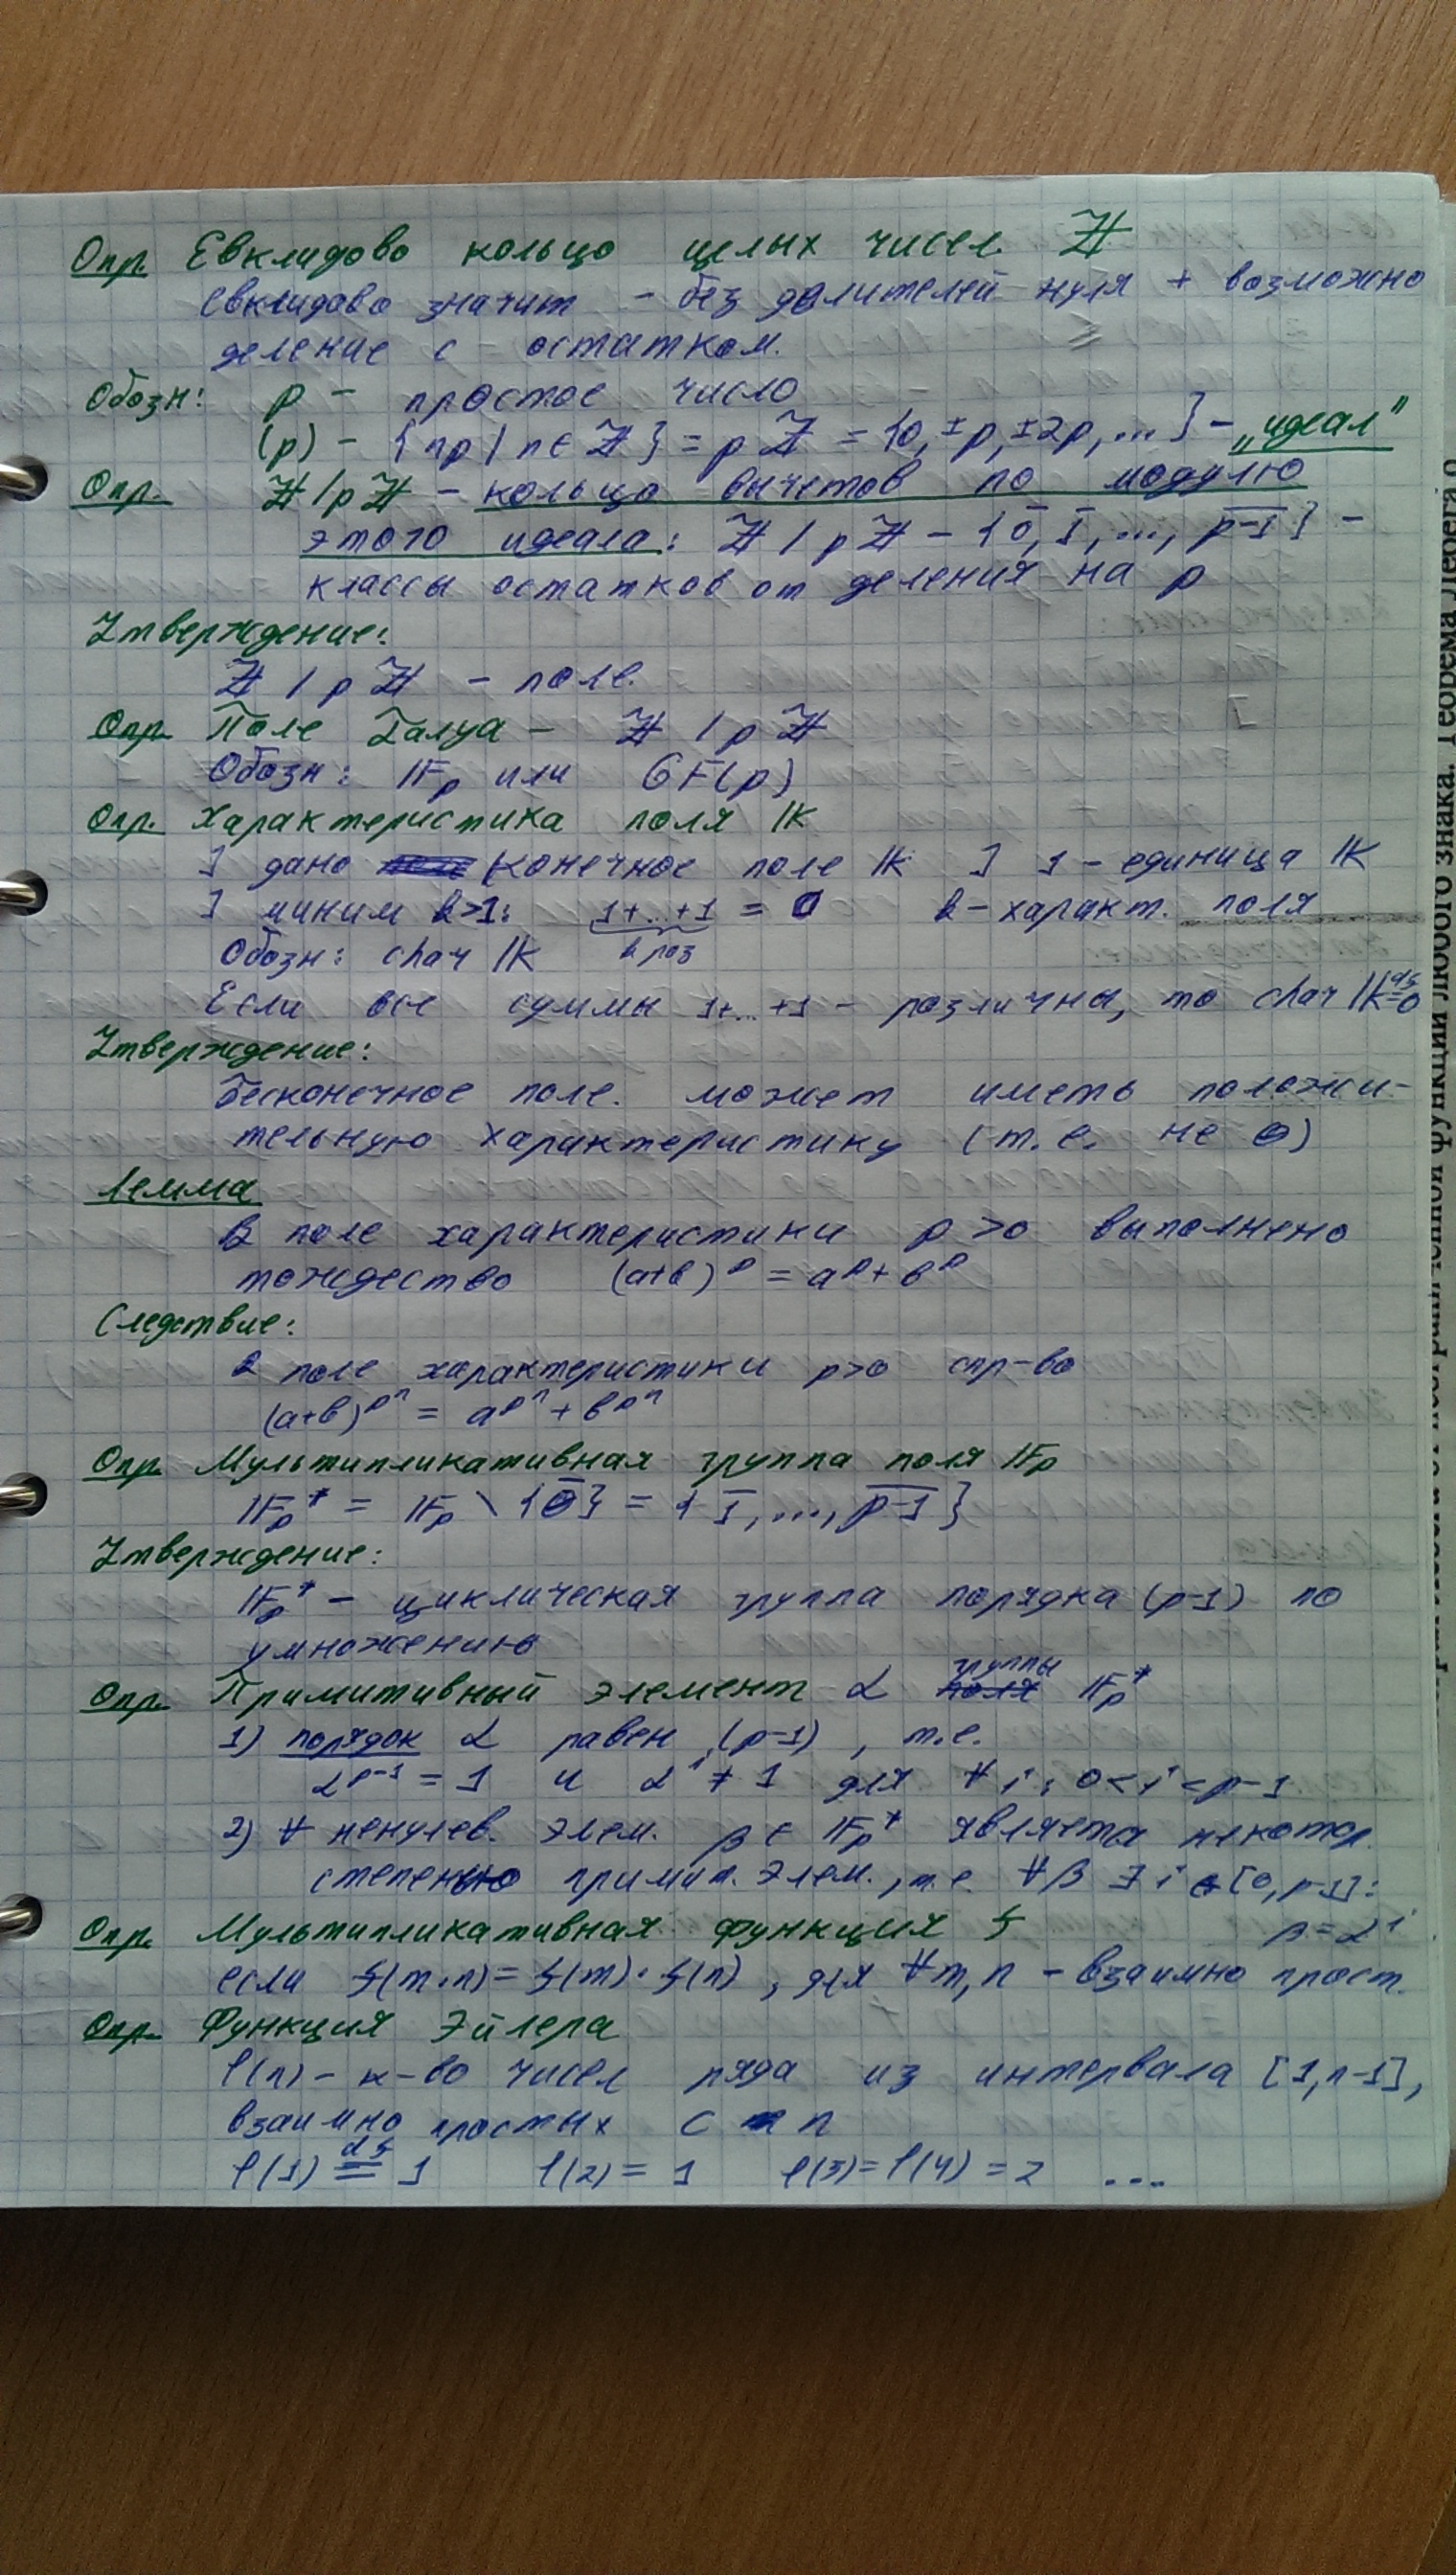 Опр. Евклидово кольцо целых чисел ℤ
Евклидово значит – без делителей нуля + возможно
деление с остатком.
Обозн: p – простое число
(p) – {np | n ∈ ℤ} = pℤ = {0, ±p, ±2p, ...} – „идеал"
Опр. ℤ/pℤ – кольцо вычетов по модулю
этого идеала: ℤ/pℤ – {0̅, 1̅, ..., p̅-̅1̅} –
классы остатков от деления на p
Утверждение:
ℤ/pℤ – поле.
Опр. Поле Галуа – ℤ/pℤ
Обозн: 𝔽ₚ или GF(p)
Опр. Характеристика поля 𝕂
] дано конечное поле 𝕂 ] 1 – единица 𝕂
] миним k>1: 1+...+1 = 0 k – характ. поля
k раз
Обозн: char 𝕂
Если все суммы 1+...+1 – различны, то char 𝕂 =ᵈᶠ 0
Утверждение:
Бесконечное поле. может иметь положи-
тельную характеристику (т.е. не 0)
Лемма
В поле характеристики p>0 выполнено
тождество (a+b)^p = a^p + b^p
Следствие:
В поле характеристики p>0 спр-во
(a+b)^{p^n} = a^{p^n} + b^{p^n}
Опр. Мультипликативная группа поля 𝔽ₚ
𝔽ₚ* = 𝔽ₚ \ {0̅} = {1̅, ..., p̅-̅1̅}
Утверждение:
𝔽ₚ* – циклическая группа порядка (p-1) по
умножению
Опр. Примитивный элемент α группы 𝔽ₚ*
1) порядок α равен (p-1), т.е.
α^{p-1} = 1 и α^i ≠ 1 для ∀ i: 0<i<p-1
2) ∀ ненулев. элем. β ∈ 𝔽ₚ* является некотор.
степенью примит. элем., т.е. ∀β ∃ i ∈ [0, p-1]:
β = α^i
Опр. Мультипликативная функция f
если f(m·n) = f(m)·f(n), для ∀m,n – взаимно прост.
Опр. Функция Эйлера
φ(n) – к-во чисел ряда из интервала [1, n-1],
взаимно простых с n
φ(1) =ᵈᶠ 1 φ(2) = 1 φ(3) = φ(4) = 2 ...